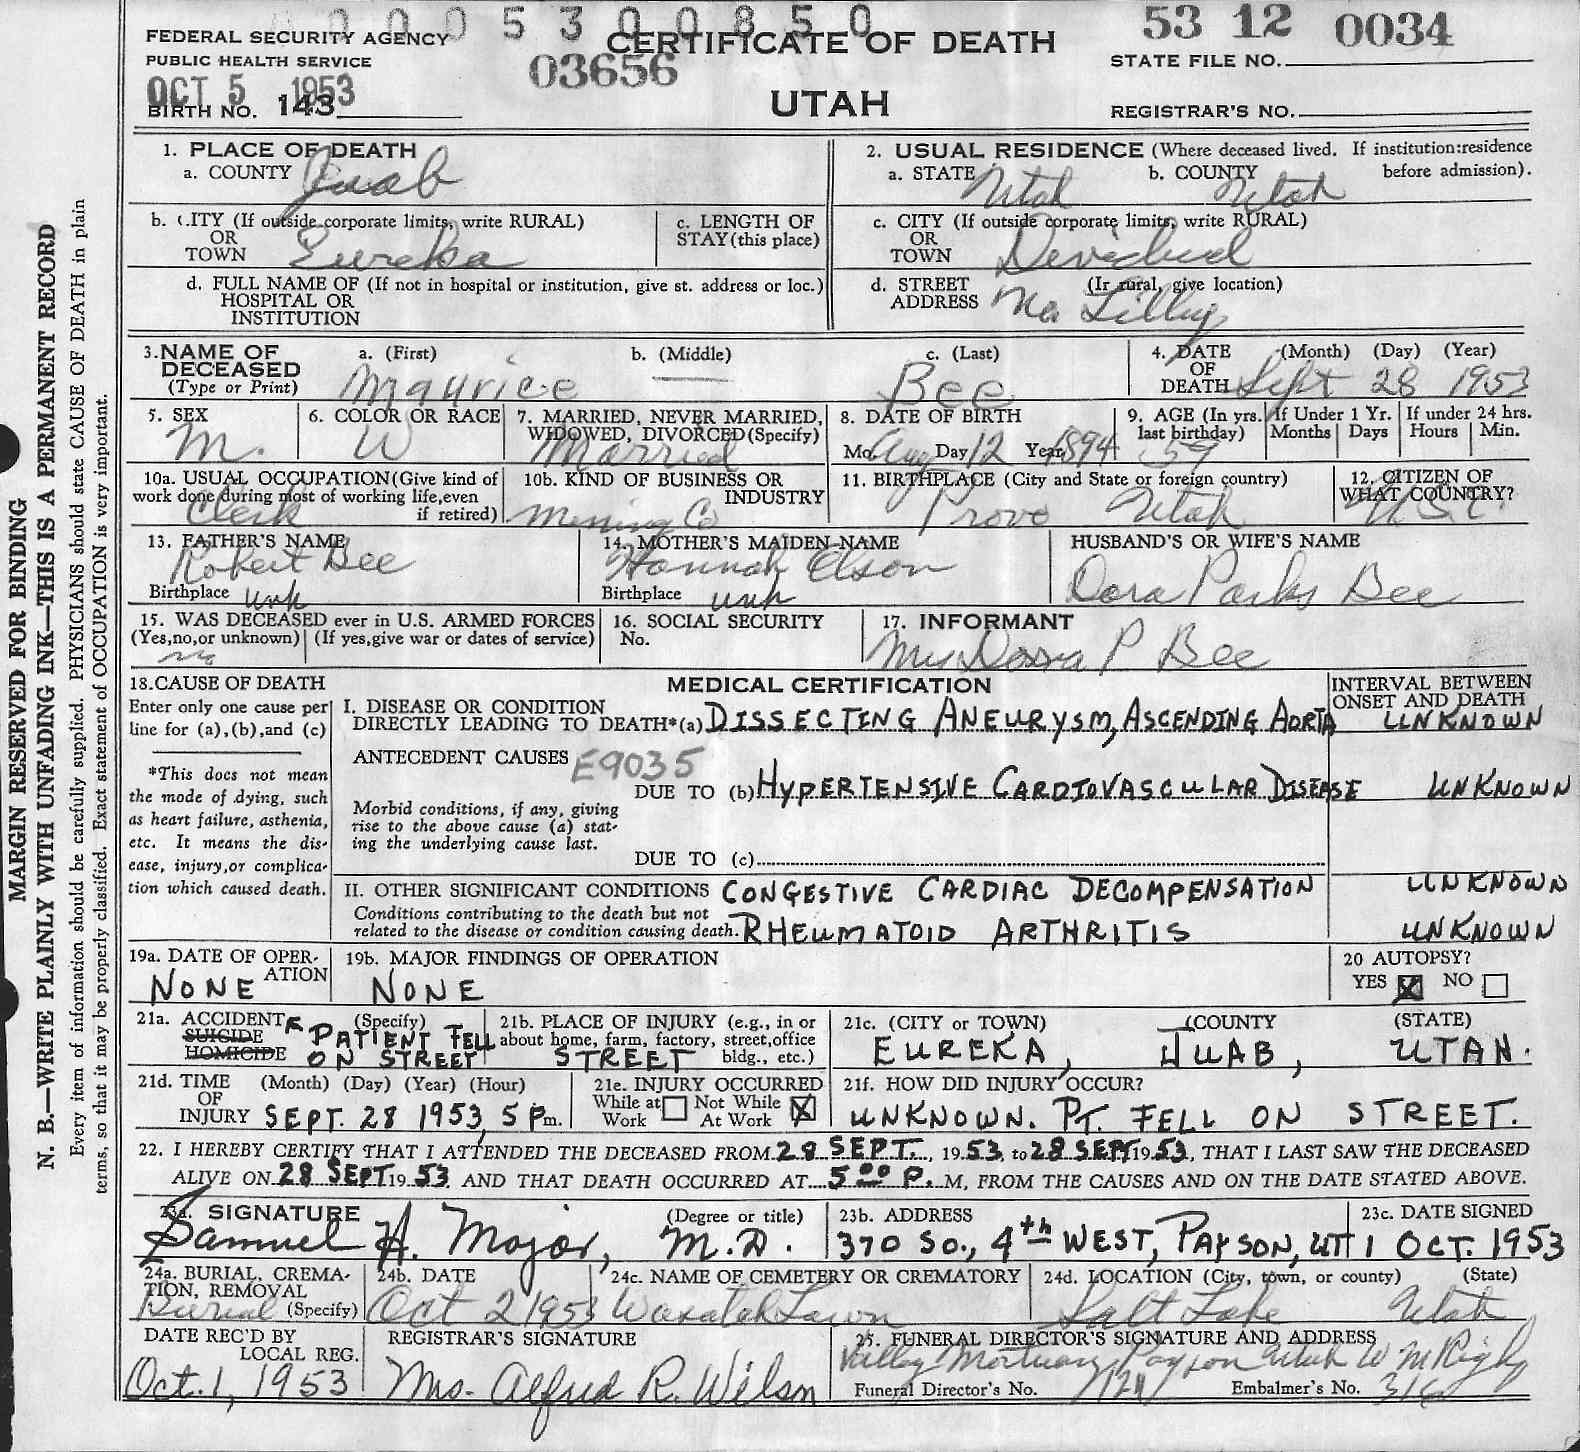 00005300850
53 12 0034
FEDERAL SECURITY AGENCY
PUBLIC HEALTH SERVICE
CERTIFICATE OF DEATH
STATE FILE NO.
03656
OCT 5 1953
BIRTH NO. 143
UTAH
REGISTRAR'S NO.
1. PLACE OF DEATH
a. COUNTY Juab
2. USUAL RESIDENCE (Where deceased lived. If institution:residence before admission).
a. STATE Utah b. COUNTY Utah
b. CITY (If outside corporate limits, write RURAL) OR TOWN Eureka
c. LENGTH OF STAY (this place)
c. CITY (If outside corporate limits, write RURAL) OR TOWN
d. FULL NAME OF (If not in hospital or institution, give st. address or loc.) HOSPITAL OR INSTITUTION
d. STREET ADDRESS (If rural, give location)
3. NAME OF DECEASED (Type or Print)
a. (First) Maurice
b. (Middle) —
c. (Last) Bee
4. DATE OF DEATH (Month) (Day) (Year) Sept 28 1953
5. SEX M.
6. COLOR OR RACE W
7. MARRIED, NEVER MARRIED, WIDOWED, DIVORCED (Specify) Married
8. DATE OF BIRTH Mo. Aug Day 12 Year 1894
9. AGE (In yrs. last birthday) 59
If Under 1 Yr. Months Days
If under 24 hrs. Hours Min.
10a. USUAL OCCUPATION (Give kind of work done during most of working life, even if retired) Clerk
10b. KIND OF BUSINESS OR INDUSTRY Mining Co
11. BIRTHPLACE (City and State or foreign country) Provo Utah
12. CITIZEN OF WHAT COUNTRY?
13. FATHER'S NAME Robert Bee
Birthplace unk
14. MOTHER'S MAIDEN NAME Hannah Olson
Birthplace unk
HUSBAND'S OR WIFE'S NAME
Dora Parks Bee
15. WAS DECEASED ever in U.S. ARMED FORCES
(Yes, no, or unknown) (If yes, give war or dates of service)
no
16. SOCIAL SECURITY No.
17. INFORMANT
Mrs Dora P Bee
18. CAUSE OF DEATH
Enter only one cause per line for (a), (b), and (c)
*This does not mean the mode of dying, such as heart failure, asthenia, etc. It means the disease, injury, or complication which caused death.
MEDICAL CERTIFICATION
INTERVAL BETWEEN ONSET AND DEATH
I. DISEASE OR CONDITION
DIRECTLY LEADING TO DEATH*(a) DISSECTING ANEURYSM, ASCENDING AORTA UNKNOWN
ANTECEDENT CAUSES E9035
DUE TO (b) HYPERTENSIVE CARDIOVASCULAR DISEASE UNKNOWN
Morbid conditions, if any, giving rise to the above cause (a) stating the underlying cause last.
DUE TO (c)
II. OTHER SIGNIFICANT CONDITIONS CONGESTIVE CARDIAC DECOMPENSATION UNKNOWN
Conditions contributing to the death but not related to the disease or condition causing death. RHEUMATOID ARTHRITIS UNKNOWN
19a. DATE OF OPERATION NONE
19b. MAJOR FINDINGS OF OPERATION
NONE
20 AUTOPSY?
YES ☒ NO ☐
21a. ACCIDENT SUICIDE HOMICIDE (Specify) PATIENT FELL ON STREET
21b. PLACE OF INJURY (e.g., in or about home, farm, factory, street, office bldg., etc.) STREET
21c. (CITY or TOWN) (COUNTY (STATE)
EUREKA, JUAB, UTAH.
21d. TIME OF INJURY (Month) (Day) (Year) (Hour) SEPT. 28 1953, 5 Pm.
21e. INJURY OCCURRED While at Work ☐ Not While At Work ☒
21f. HOW DID INJURY OCCUR?
UNKNOWN. PT. FELL ON STREET.
22. I HEREBY CERTIFY THAT I ATTENDED THE DECEASED FROM 28 SEPT., 1953, to 28 SEPT 1953, THAT I LAST SAW THE DECEASED
ALIVE ON 28 SEPT. 1953, AND THAT DEATH OCCURRED AT 5 00 P. M, FROM THE CAUSES AND ON THE DATE STATED ABOVE.
23a. SIGNATURE (Degree or title)
Samuel H. Major, M.D.
23b. ADDRESS
370 SO., 4th WEST, PAYSON, UT
23c. DATE SIGNED
1 OCT. 1953
24a. BURIAL, CREMATION, REMOVAL (Specify) Burial
24b. DATE
Oct 2 1953
24c. NAME OF CEMETERY OR CREMATORY
Wasatch Lawn
24d. LOCATION (City, town, or county) (State)
Salt Lake Utah
DATE REC'D BY LOCAL REG.
Oct. 1, 1953
REGISTRAR'S SIGNATURE
Mrs. Alfred R. Wilson
25. FUNERAL DIRECTOR'S SIGNATURE AND ADDRESS
Valley Mortuary Payson Utah
Funeral Director's No.
Embalmer's No. 316
MARGIN RESERVED FOR BINDING
N. B.—WRITE PLAINLY WITH UNFADING INK—THIS IS A PERMANENT RECORD
Every item of information should be carefully supplied. PHYSICIANS should state CAUSE OF DEATH in plain
terms, so that it may be properly classified. Exact statement of OCCUPATION is very important.